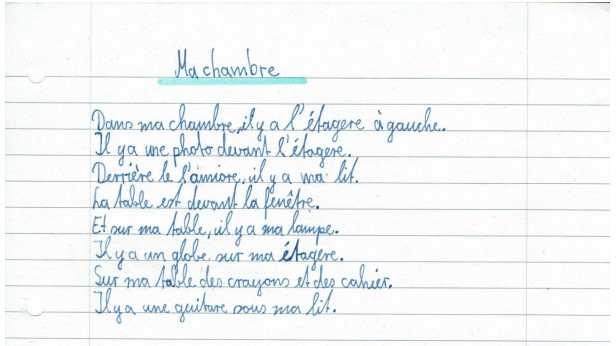 Ma chambre
Dans ma chambre, il y a l'étagere à gauche.
Il y a une photo devant l'étagere.
Derrière le l'amiore, il y a ma lit.
La table est devant la fenêtre.
Et sur ma table, il y a ma lampe.
Il y a un globe sur ma étagère.
Sur ma table des crayons et des cahier.
Il y a une guitare sous ma lit.